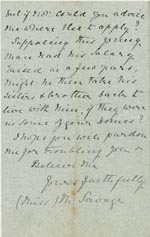 but if not could you advise
me where else to apply?
Supposing this young
man had his salary
raised in a few years,
might he then take his
sisters & brother back to
live with him, if they were
in some of your homes?
I hope you will pardon
me for troubling you &
Believe me
Yours faithfully
(Miss) M. Savage